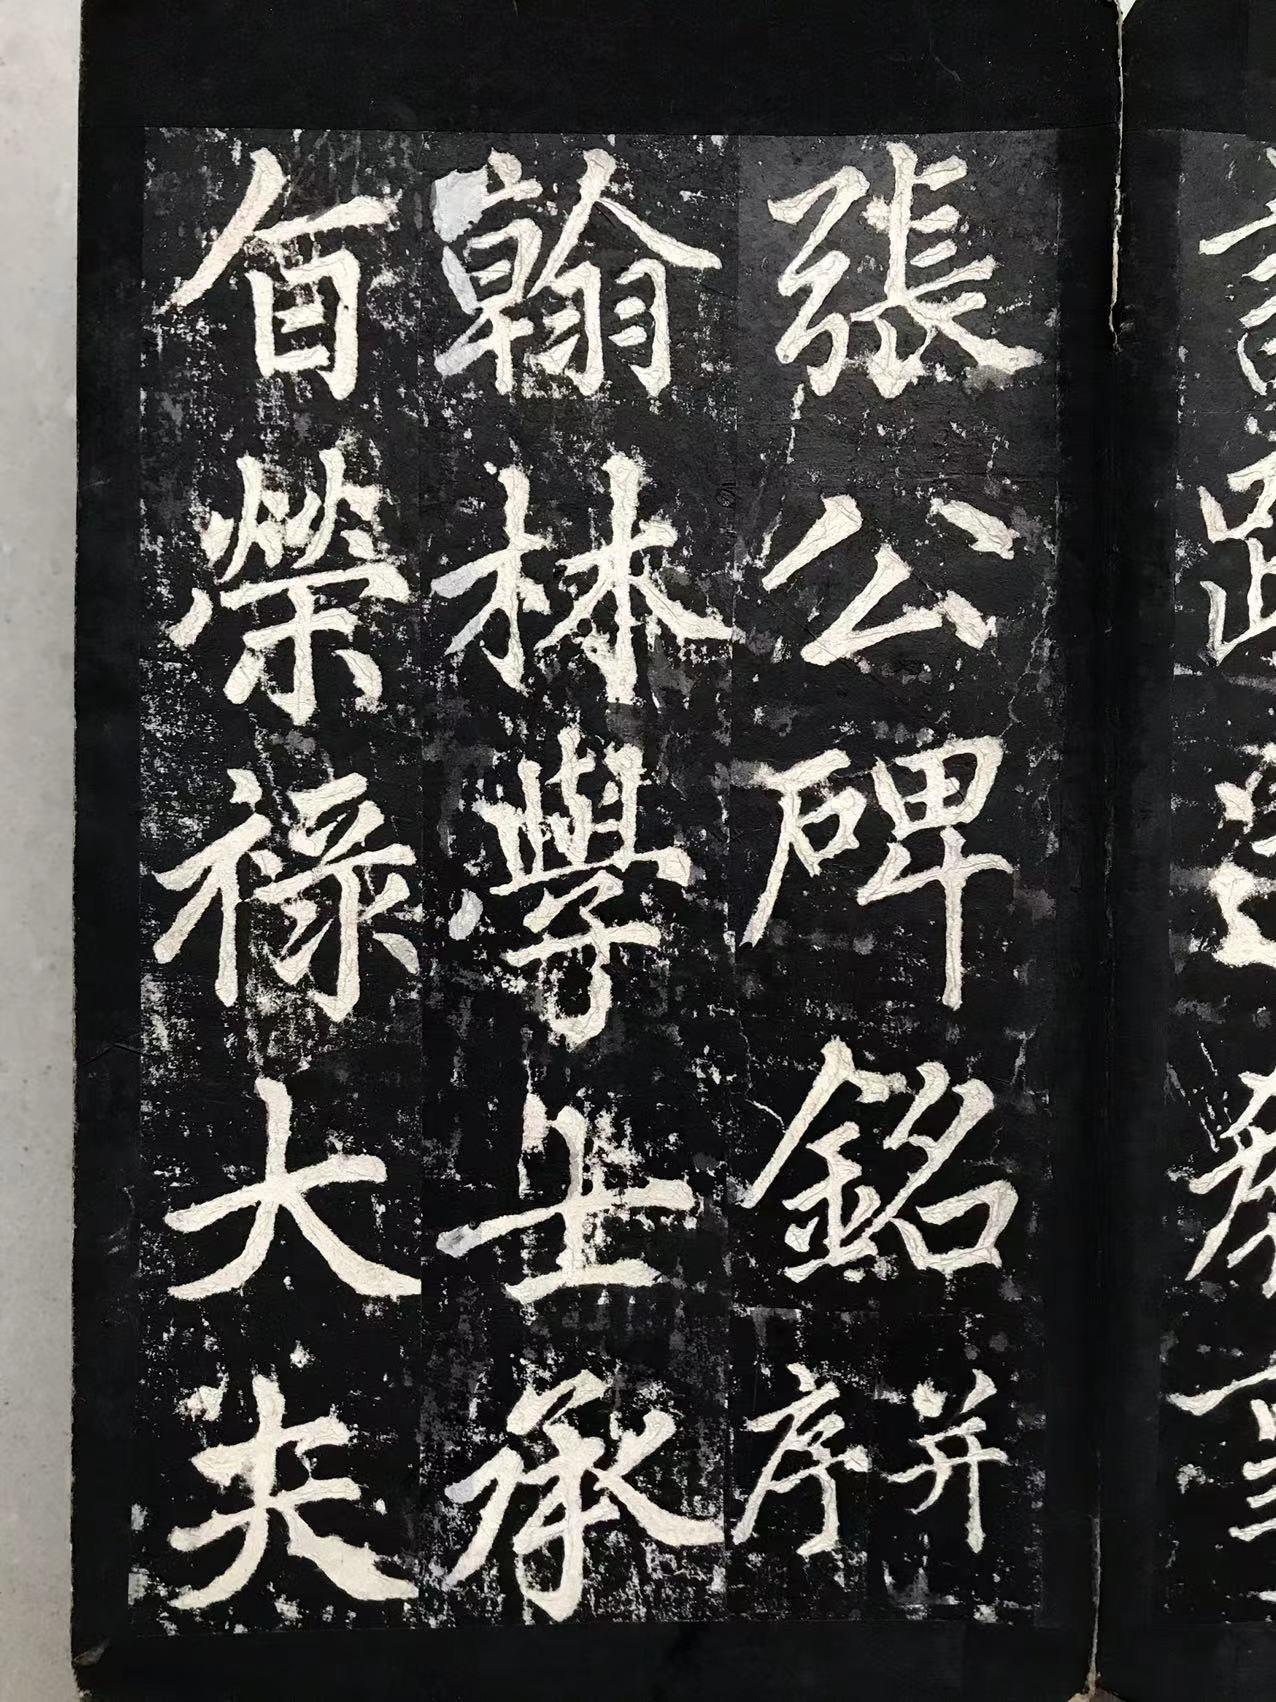 張公碑銘并序
翰林學士承
旨榮禄大夫